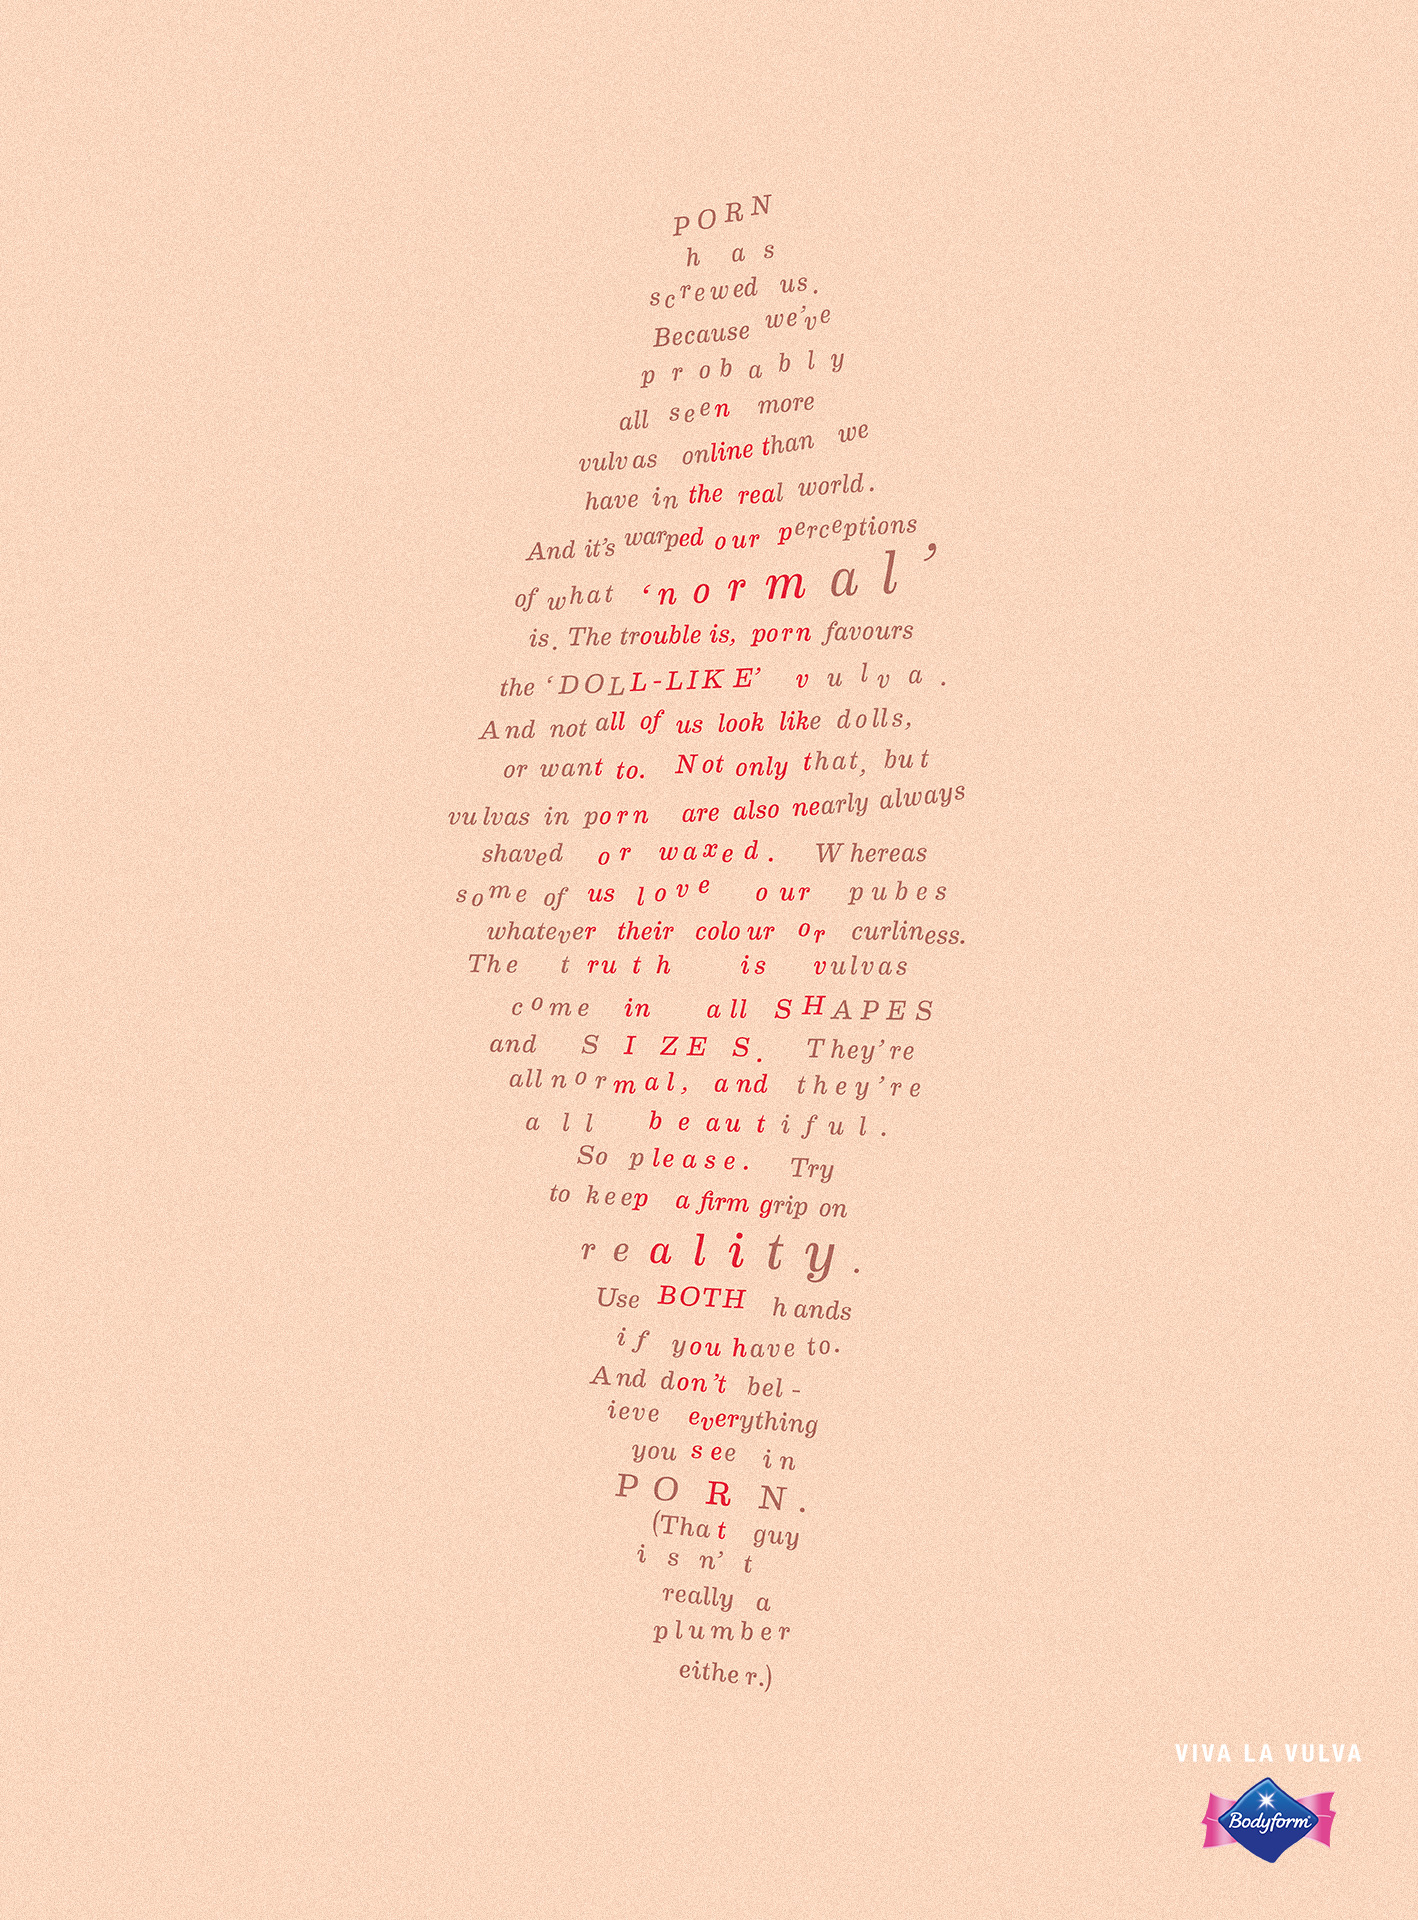 PORN
has
screwed us.
Because we've
probably
all seen more
vulvas online than we
have in the real world.
And it's warped our perceptions
of what ‘normal’
is. The trouble is, porn favours
the ‘DOLL-LIKE’ vulva.
And not all of us look like dolls,
or want to. Not only that, but
vulvas in porn are also nearly always
shaved or waxed. Whereas
some of us love our pubes
whatever their colour or curliness.
The truth is vulvas
come in all SHAPES
and SIZES. They're
all normal, and they're
all beautiful.
So please. Try
to keep a firm grip on
reality.
Use BOTH hands
if you have to.
And don't bel-
ieve everything
you see in
PORN.
(That guy
isn't
really a
plumber
either.)
VIVA LA VULVA
Bodyform